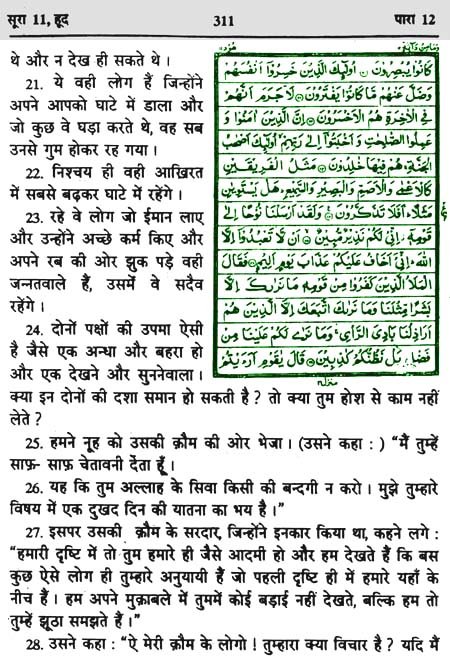 सूरा 11, हूद 311 पारा 12
थे और न देख ही सकते थे ।
21. ये वही लोग हैं जिन्होंने
अपने आपको घाटे में डाला और
जो कुछ वे घड़ा करते थे, वह सब
उनसे गुम होकर रह गया ।
22. निश्चय ही वही आख़िरत
में सबसे बढ़कर घाटे में रहेंगे ।
23. रहे वे लोग जो ईमान लाए
और उन्होंने अच्छे कर्म किए और
अपने रब की ओर झुक पड़े वही
जन्नतवाले हैं, उसमें वे सदैव
रहेंगे ।
24. दोनों पक्षों की उपमा ऐसी
है जैसे एक अन्धा और बहरा हो
और एक देखने और सुननेवाला ।
كَانُوْا يُبْصِرُوْنَ ۝ اُولٰٓئِكَ الَّذِيْنَ خَسِرُوْٓا اَنْفُسَهُمْ
وَضَلَّ عَنْهُمْ مَّا كَانُوْا يَفْتَرُوْنَ ۝ لَا جَرَمَ اَنَّهُمْ
فِي الْاٰخِرَةِ هُمُ الْاَخْسَرُوْنَ ۝ اِنَّ الَّذِيْنَ اٰمَنُوْا وَ
عَمِلُوا الصّٰلِحٰتِ وَاَخْبَتُوْٓا اِلٰى رَبِّهِمْ اُولٰٓئِكَ اَصْحٰبُ
الْجَنَّةِ هُمْ فِيْهَا خٰلِدُوْنَ ۝ مَثَلُ الْفَرِيْقَيْنِ
كَالْاَعْمٰى وَالْاَصَمِّ وَالْبَصِيْرِ وَالسَّمِيْعِ هَلْ يَسْتَوِيٰنِ
مَثَلًا اَفَلَا تَذَكَّرُوْنَ ۝ وَلَقَدْ اَرْسَلْنَا نُوْحًا اِلٰى
قَوْمِهٖٓ اِنِّيْ لَكُمْ نَذِيْرٌ مُّبِيْنٌ ۝ اَنْ لَّا تَعْبُدُوْٓا اِلَّا
اللهَ اِنِّيْٓ اَخَافُ عَلَيْكُمْ عَذَابَ يَوْمٍ اَلِيْمٍ ۝ فَقَالَ
الْمَلَاُ الَّذِيْنَ كَفَرُوْا مِنْ قَوْمِهٖ مَا نَرٰىكَ اِلَّا
بَشَرًا مِّثْلَنَا وَمَا نَرٰىكَ اتَّبَعَكَ اِلَّا الَّذِيْنَ هُمْ
اَرَاذِلُنَا بَادِيَ الرَّاْيِ وَمَا نَرٰى لَكُمْ عَلَيْنَا مِنْ
فَضْلٍۭ بَلْ نَظُنُّكُمْ كٰذِبِيْنَ ۝ قَالَ يٰقَوْمِ اَرَءَيْتُمْ
क्या इन दोनों की दशा समान हो सकती है ? तो क्या तुम होश से काम नहीं
लेते ?
25. हमने नूह को उसकी क़ौम की ओर भेजा । (उसने कहा : ) “मैं तुम्हें
साफ़- साफ़ चेतावनी देता हूँ ।
26. यह कि तुम अल्लाह के सिवा किसी की बन्दगी न करो । मुझे तुम्हारे
विषय में एक दुखद दिन की यातना का भय है ।”
27. इसपर उसकी क़ौम के सरदार, जिन्होंने इनकार किया था, कहने लगे :
“हमारी दृष्टि में तो तुम हमारे ही जैसे आदमी हो और हम देखते हैं कि बस
कुछ ऐसे लोग ही तुम्हारे अनुयायी हैं जो पहली दृष्टि ही में हमारे यहाँ के
नीच हैं । हम अपने मुक़ाबले में तुममें कोई बड़ाई नहीं देखते, बल्कि हम तो
तुम्हें झूठा समझते हैं ।”
28. उसने कहा : “ऐ मेरी क़ौम के लोगो ! तुम्हारा क्या विचार है ? यदि मैं